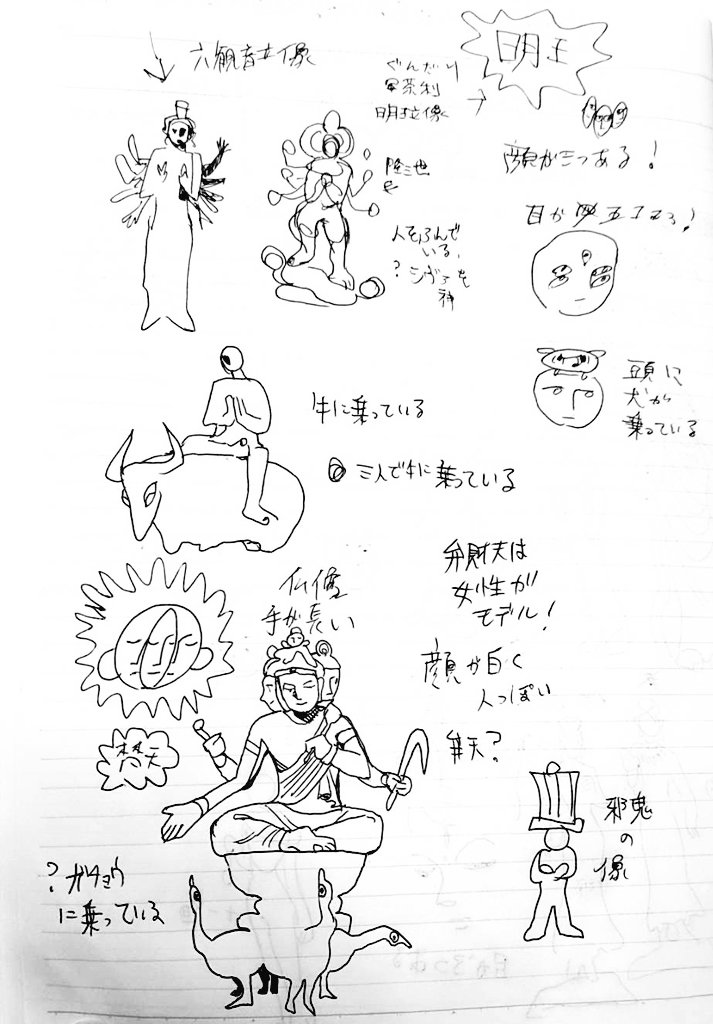 六観音立像
明王
ぐんだり
軍荼利
明王立像
顔が三つある！
降三世
人をふんで
いる。
？シヴァを
神
目が五つある！
頭に
犬が
乗っている
牛に乗っている
三人で牛に乗っている
仏像
手が長い
弁財天は
女性が
モデル！
顔が白く
人っぽい
梵天
弁天？
邪鬼
の
像
？ガチョウ
に乗っている